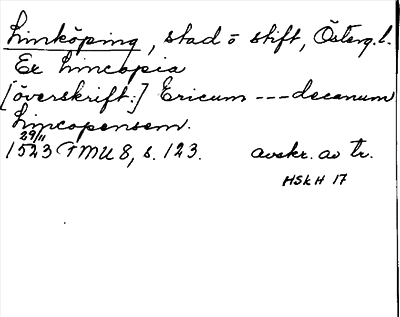 Linköping, stad o stift, Österg.l.
Ex Lincopia
[överskrift:] Ericum --- decanum
Lincopensem.
29/11
1523 TMU 8, s. 123. avskr. av tr.
HSkH 17